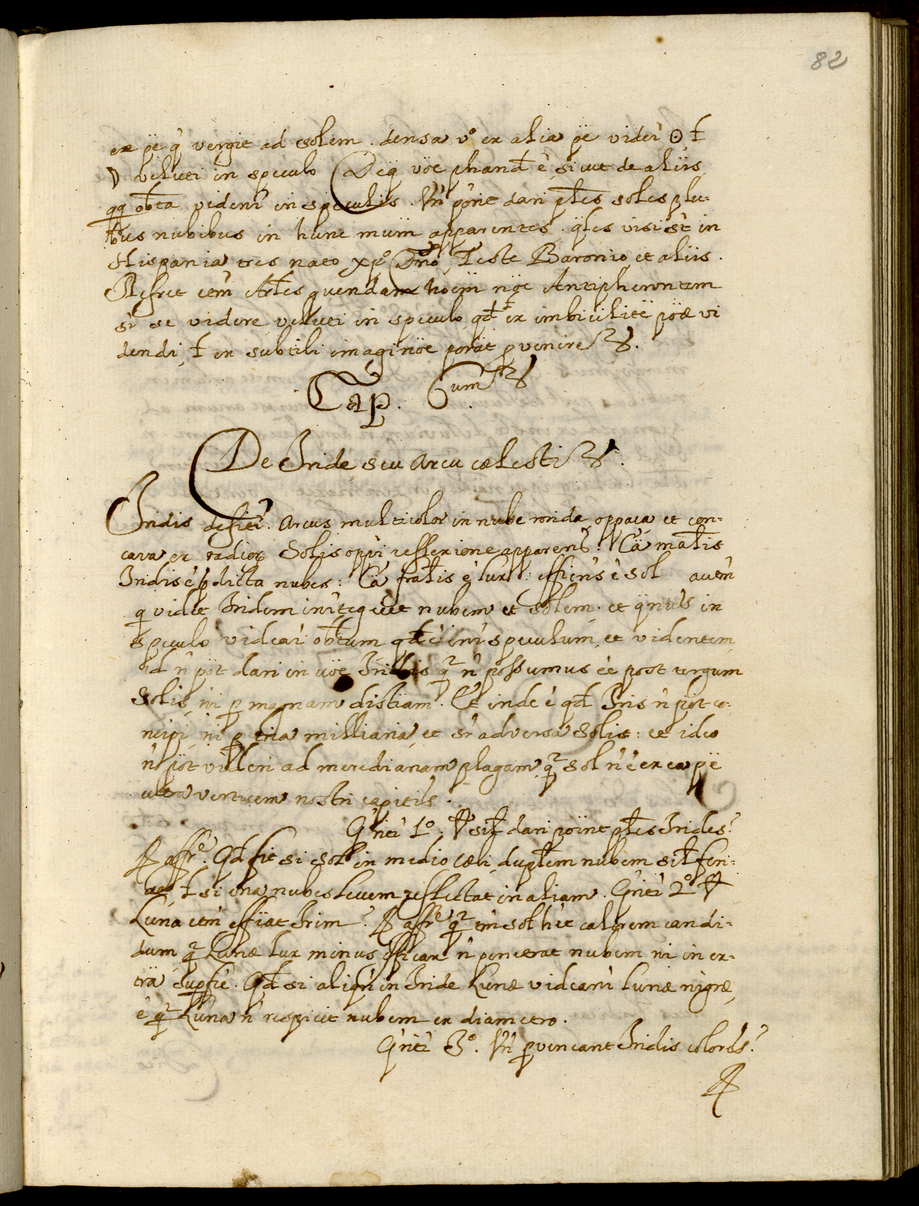 82
ex pē q̄ vergit ad solem. densa vº ex alia pē videt̄ ☉ ł
☽ veluti in speculo Deq̄ vöe phand' ē sicut de aliis
qq obta vident̄ in speculis. Vn̄ pōnt dari pl̄es soles plu-
bus nubibus in hunc mūm apparentes. q̄les visi st̄ in
Hispania tres nato xpº Dnō, Teste Baronio et aliis.
Refert etm̄ Ar̄tes quendam hoiem̄ nōe Antipherontem
se videre veluti in speculo qd̄ ex imbicilitē pōae vi
dendi, ł ex subtili imaginöe porat ꝑvenire
Cap.
De Iride seu Arcu cælesti
Iridis defiēt. Arcus multicolor in nube rorida, oppaca et con-
cava ex radior Solis oppī reflexione apparens. Cā mālis
Iridis ē p̄dicta nubes: Cā frālis ē lux: effiēns ē sol autm̄
q videt Iridem int̄egit nubem et Solem. et
speculo videat obtum qd̄ ē int̄ speculum, et videntem
n̄ pōt dari in nöe Iridis q² n̄ possumus ēe post tergum
Solis, ni ꝑ magnam distiam. Et inde ē qd̄ Iris n̄ pōt co-
ncipi, ni ꝑ tria milliaria, et sr̄ adversa Solis: et ideo
n̄ pōt videri ad meridianam plagam, q² sol n̄ ē ex ea pē
ultra verticem nostri capitis.
Q̄rēt 1º, V̄ sīt dari pōint pl̄es Irides?
℟ affrē. Qd̄ fit si sol in medio cæli, dupl̄em nubem sīł feri-
at ł si una nubes lucem reflectat in aliam. Q̄rēt 2º V̄
Luna etm̄ effiat Irim? ℟ affē q² tm̄ sol het calorem candi-
dum q² Lunæ lux minus efficax n̄ penetrat nubem ni in ex-
trā supfie. Qd̄ si aliqn̄ in Iride Lunæ videant̄ lunæ nigræ,
ē q² Luna n̄ respicit nubem ex diametro.
Q̄rēt 3º. Vn̄ ꝑveniant Iridis colores?
℟